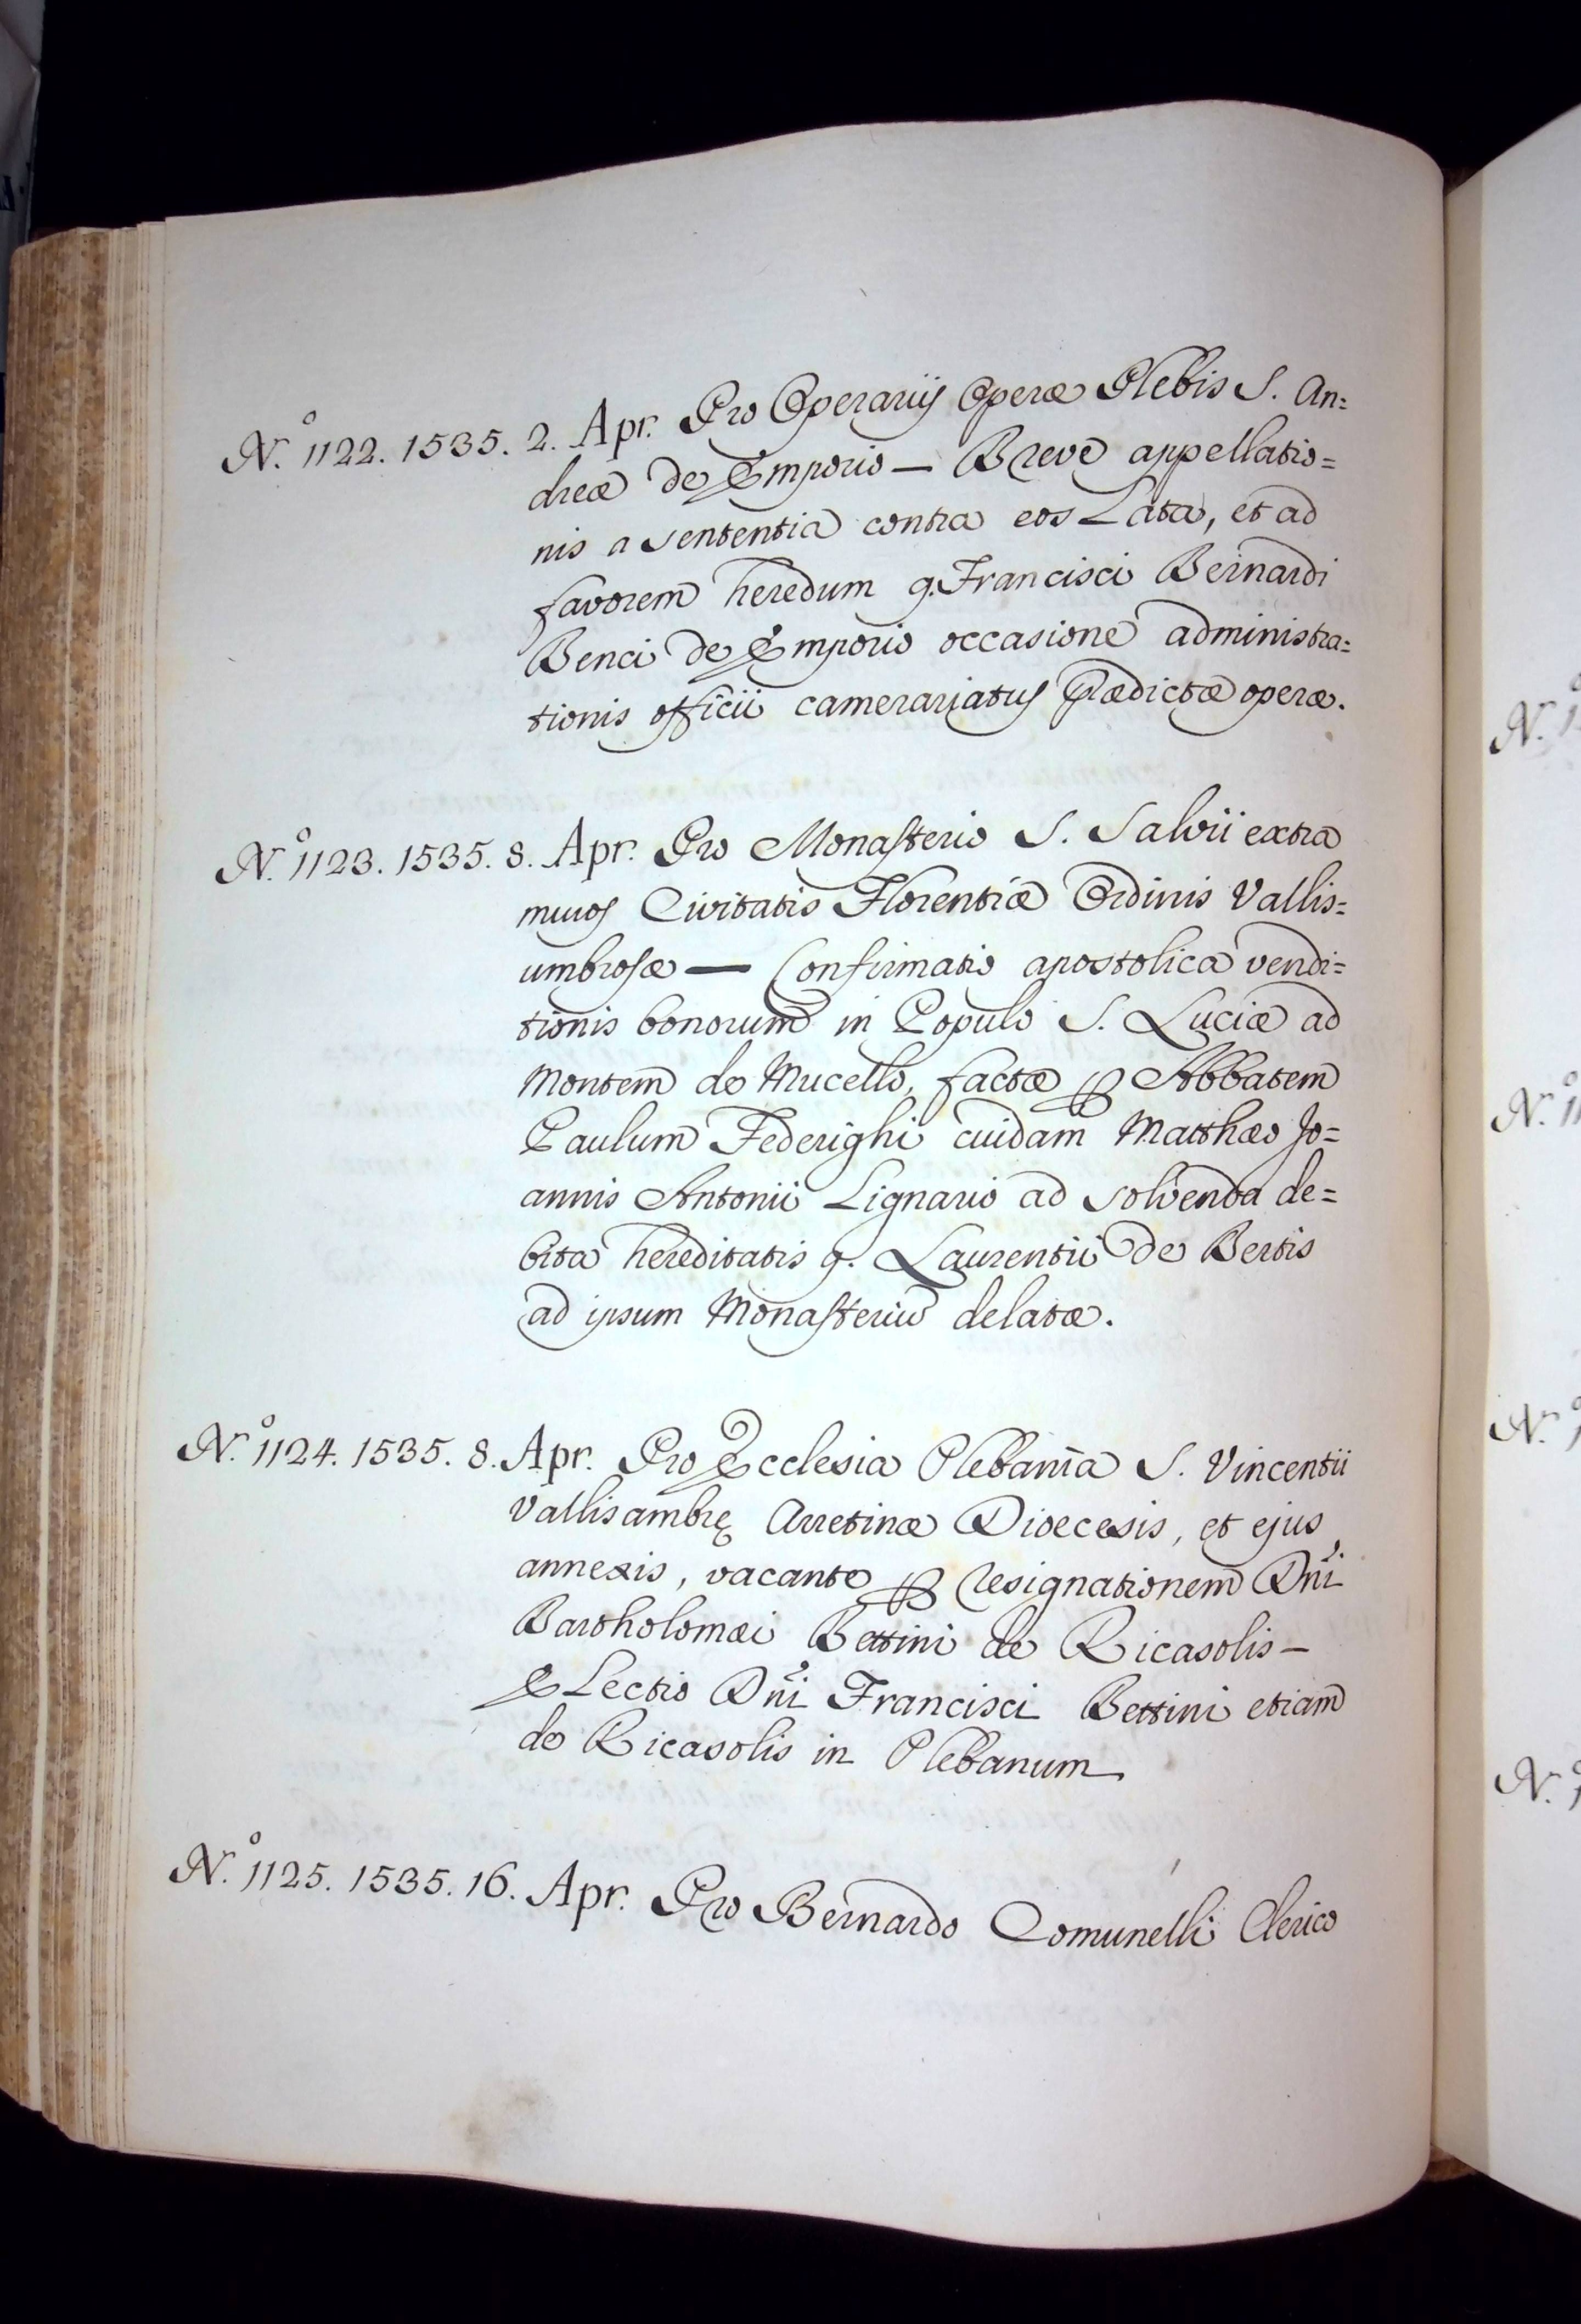 N.º 1122. 1535. 2. Apr. Pro Operarijs Operæ Plebis S. An=
dreæ de Emporio — Breve appellatio=
nis a sententia contra eos Lata, et ad
favorem heredum q. Francisci Bernardi
Benci de Emporio occasione administra=
tionis officii camerariatus prædictæ operæ.
N.º 1123. 1535. 8. Apr. Pro Monasterio S. Salvii extra
muros Civitatis Florentiæ Ordinis Vallis=
umbrosæ — Confirmatio apostolica vendi=
tionis bonorum in Populo S. Luciæ ad
Montem de Mucello, factæ ꝑ Abbatem
Paulum Federighi cuidam Matthæo Jo=
annis Antonii Lignario ad solvenda de=
bita hereditatis q. Laurentii de Bertis
ad ipsum Monasteriũ delatæ.
N.º 1124. 1535. 8. Apr. Pro Ecclesia Plebania S. Vincentii
Vallisambrę Arretinæ Dioecesis, et ejus
annexis, vacante ꝑ resignationem Dñi
Bartholomæi Bettini de Ricasolis —
ELectio Dñi Francisci Bettini etiam
de Ricasolis in Plebanum
N.º 1125. 1535. 16. Apr. Pro Bernardo Comunelli Clerico
N.º
N.º
N.º
N.º